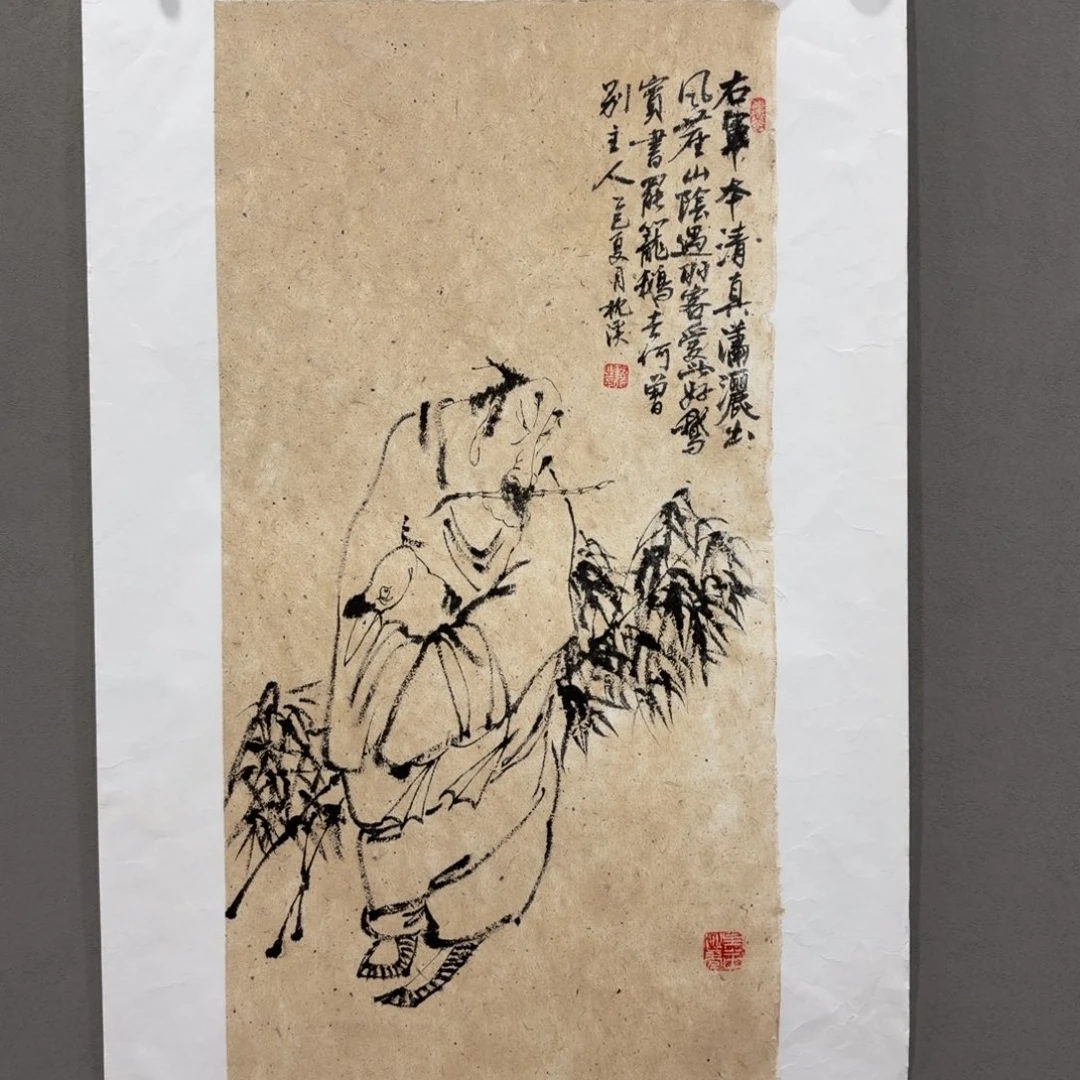 右軍本清真瀟灑出
風塵山陰遇羽客愛此好鵞
賓書罷籠鵝去何曾
别主人乙巳夏月